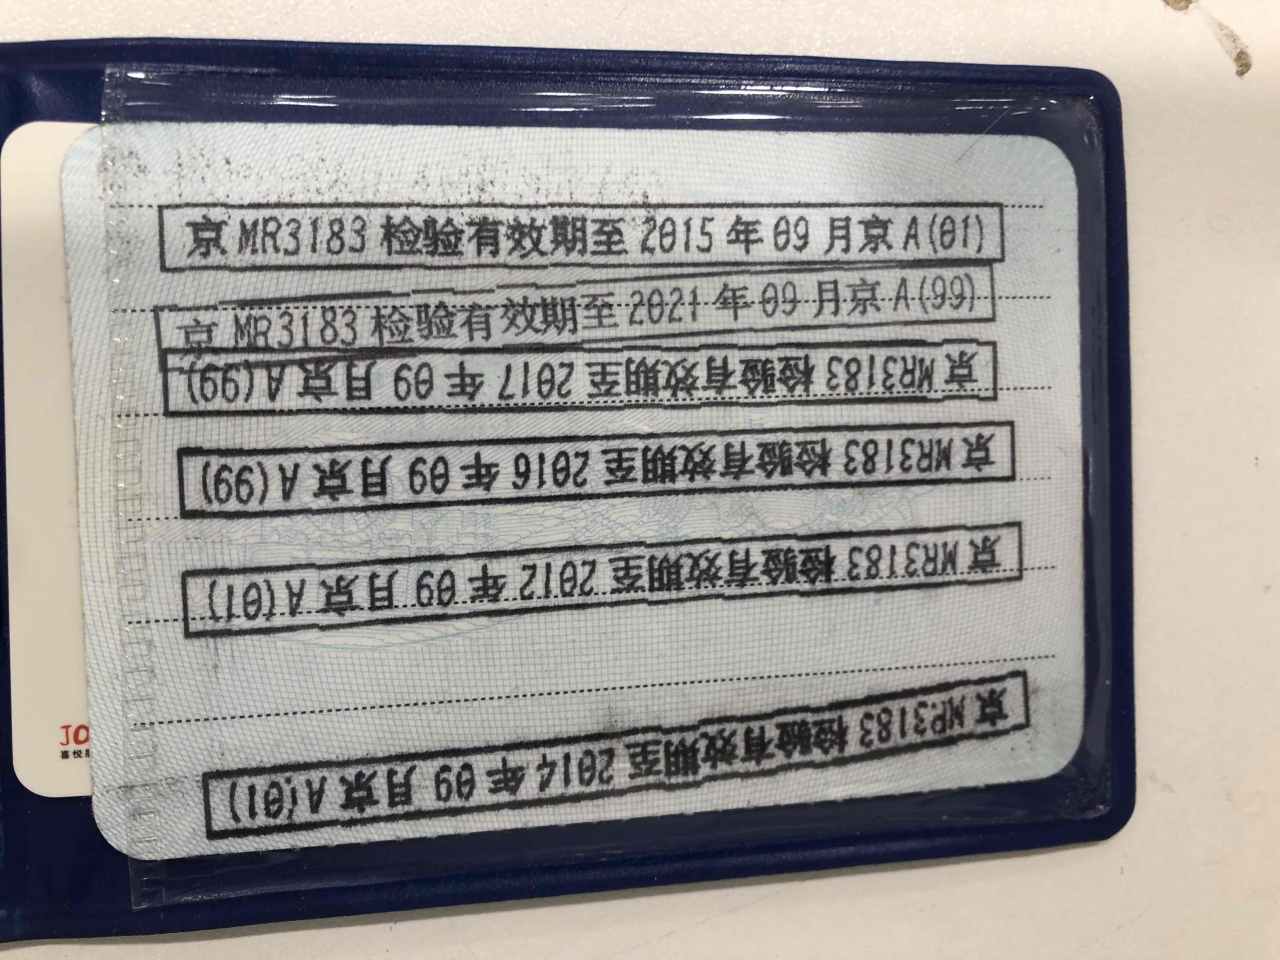 京MR3183 检验有效期至 2015 年 09 月京 A(01)
京MR3183 检验有效期至 2021 年 09 月京 A(99)
京MR3183 检验有效期至 2017 年 09 月京 A(99)
京MR3183 检验有效期至 2016 年 09 月京 A(99)
京MR3183 检验有效期至 2012 年 09 月京 A(01)
京MR3183 检验有效期至 2014 年 09 月京 A(01)
JO
喜悦